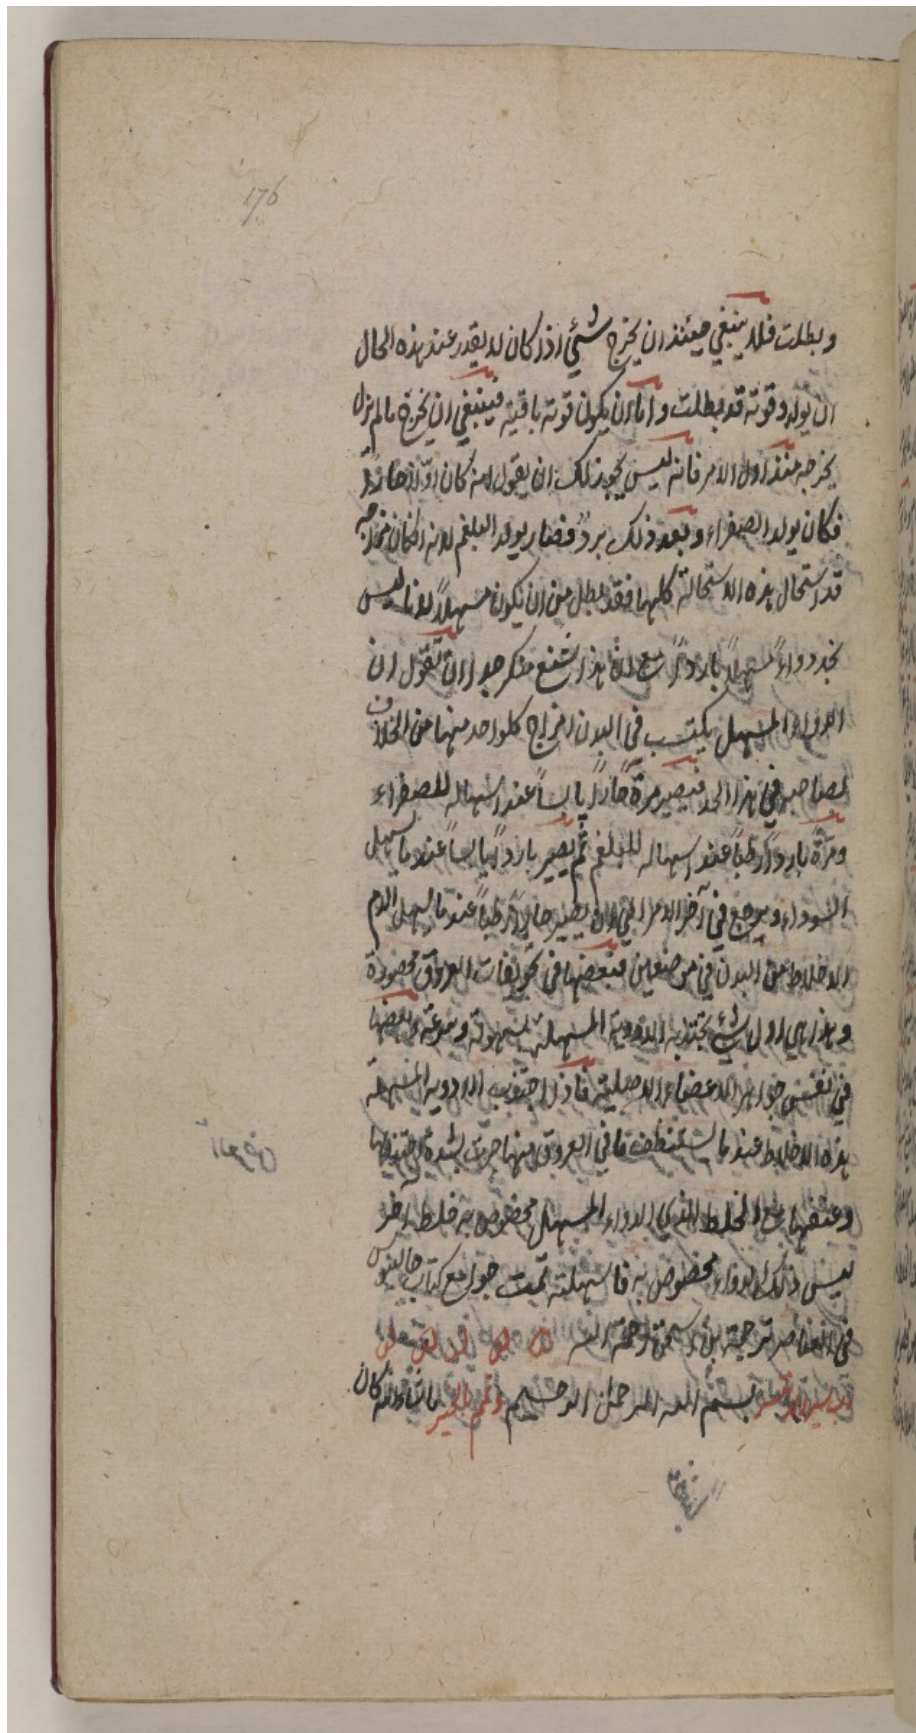 176
وبطلت فلا ينبغي حينئذ ان يخرج شئي اذ كان لا يقدر عند هذه الحال
ان يولد وقوته قد بطلت واما ان يكون قوته باقية فينبغي ان يخرج ما لم يزل
يخرجه منذ اول الامر فانه ليس يجوز لك ان يقول انه كان اولا حارا
فكان يولد الصفراء وبعد ذلك برد فصار يولد البلغم لانه ان كان مزاجه
قد استحال هذه الاستحالة كلها فقد بطل من ان يكون مسهلاً لانا ليس
نجد دواءً مسهلاً بارداً مع ان هذا شنع منكر جدا ان تقول ان
الدواء المسهل يكتسب في البدن مزاج كلواحد منها من الخلاف
لصاحبه في هذا الحد فيصير مرة حاراً يابساً عند اسهاله للصفراء
ومرّةً بارداً رطباً عند اسهاله للبلغم ثم يصير بارداً يابساً عند ما يسهل
السوداء ويرجع في آخر الامر الى ان يصير حاراً رطباً عند ما يسهل الدم
الاخلاط من البدن في موضعين فبعضها في تجويفات العروق محصورة
وهذا هي اول شئ يجتذبه الادوية المسهلة بسهولة وسرعة وبعضها
في نفس جواهر الاعضاء الاصلية فاذا اجتذبت الادوية المسهلة
هذه الاخلاط عند ما يستنظف ما في العروق منها جرت لشدة اجتذابها
وعنفها مع الخلط الذي الدواء المسهل مخصوص به خلط اخر
ليس ذلك الدواء مخصوص به فاسهلته تمت جوامع كتاب جالينوس
في العناصر ترجمة
بسم الله الرحمن الرحيم وتمم بالخير ما شاء الله كان